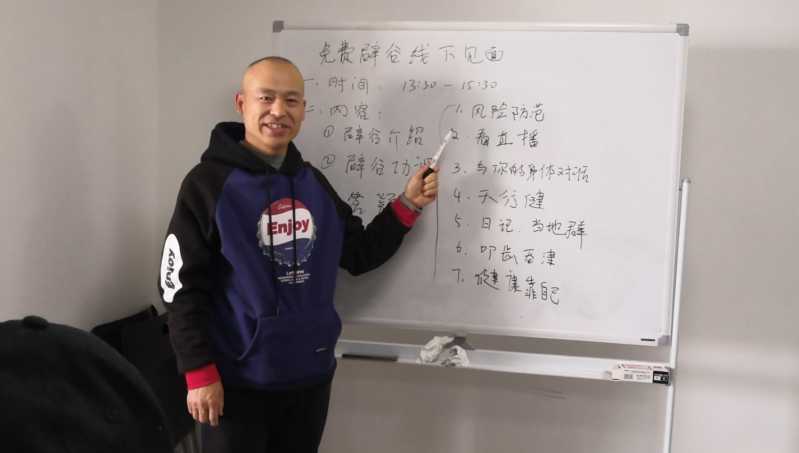 免费辟谷线下见面
一.时间: 13:30-15:30
二.内容:
① 辟谷介绍
② 辟谷功
答疑
1. 风险防范
2. 看直播
3. 与你的身体对话
4. 天行健
5. 日记.当地群
6. 叩齿吞津
7. 健康靠自己
Enjoy
Enjoy